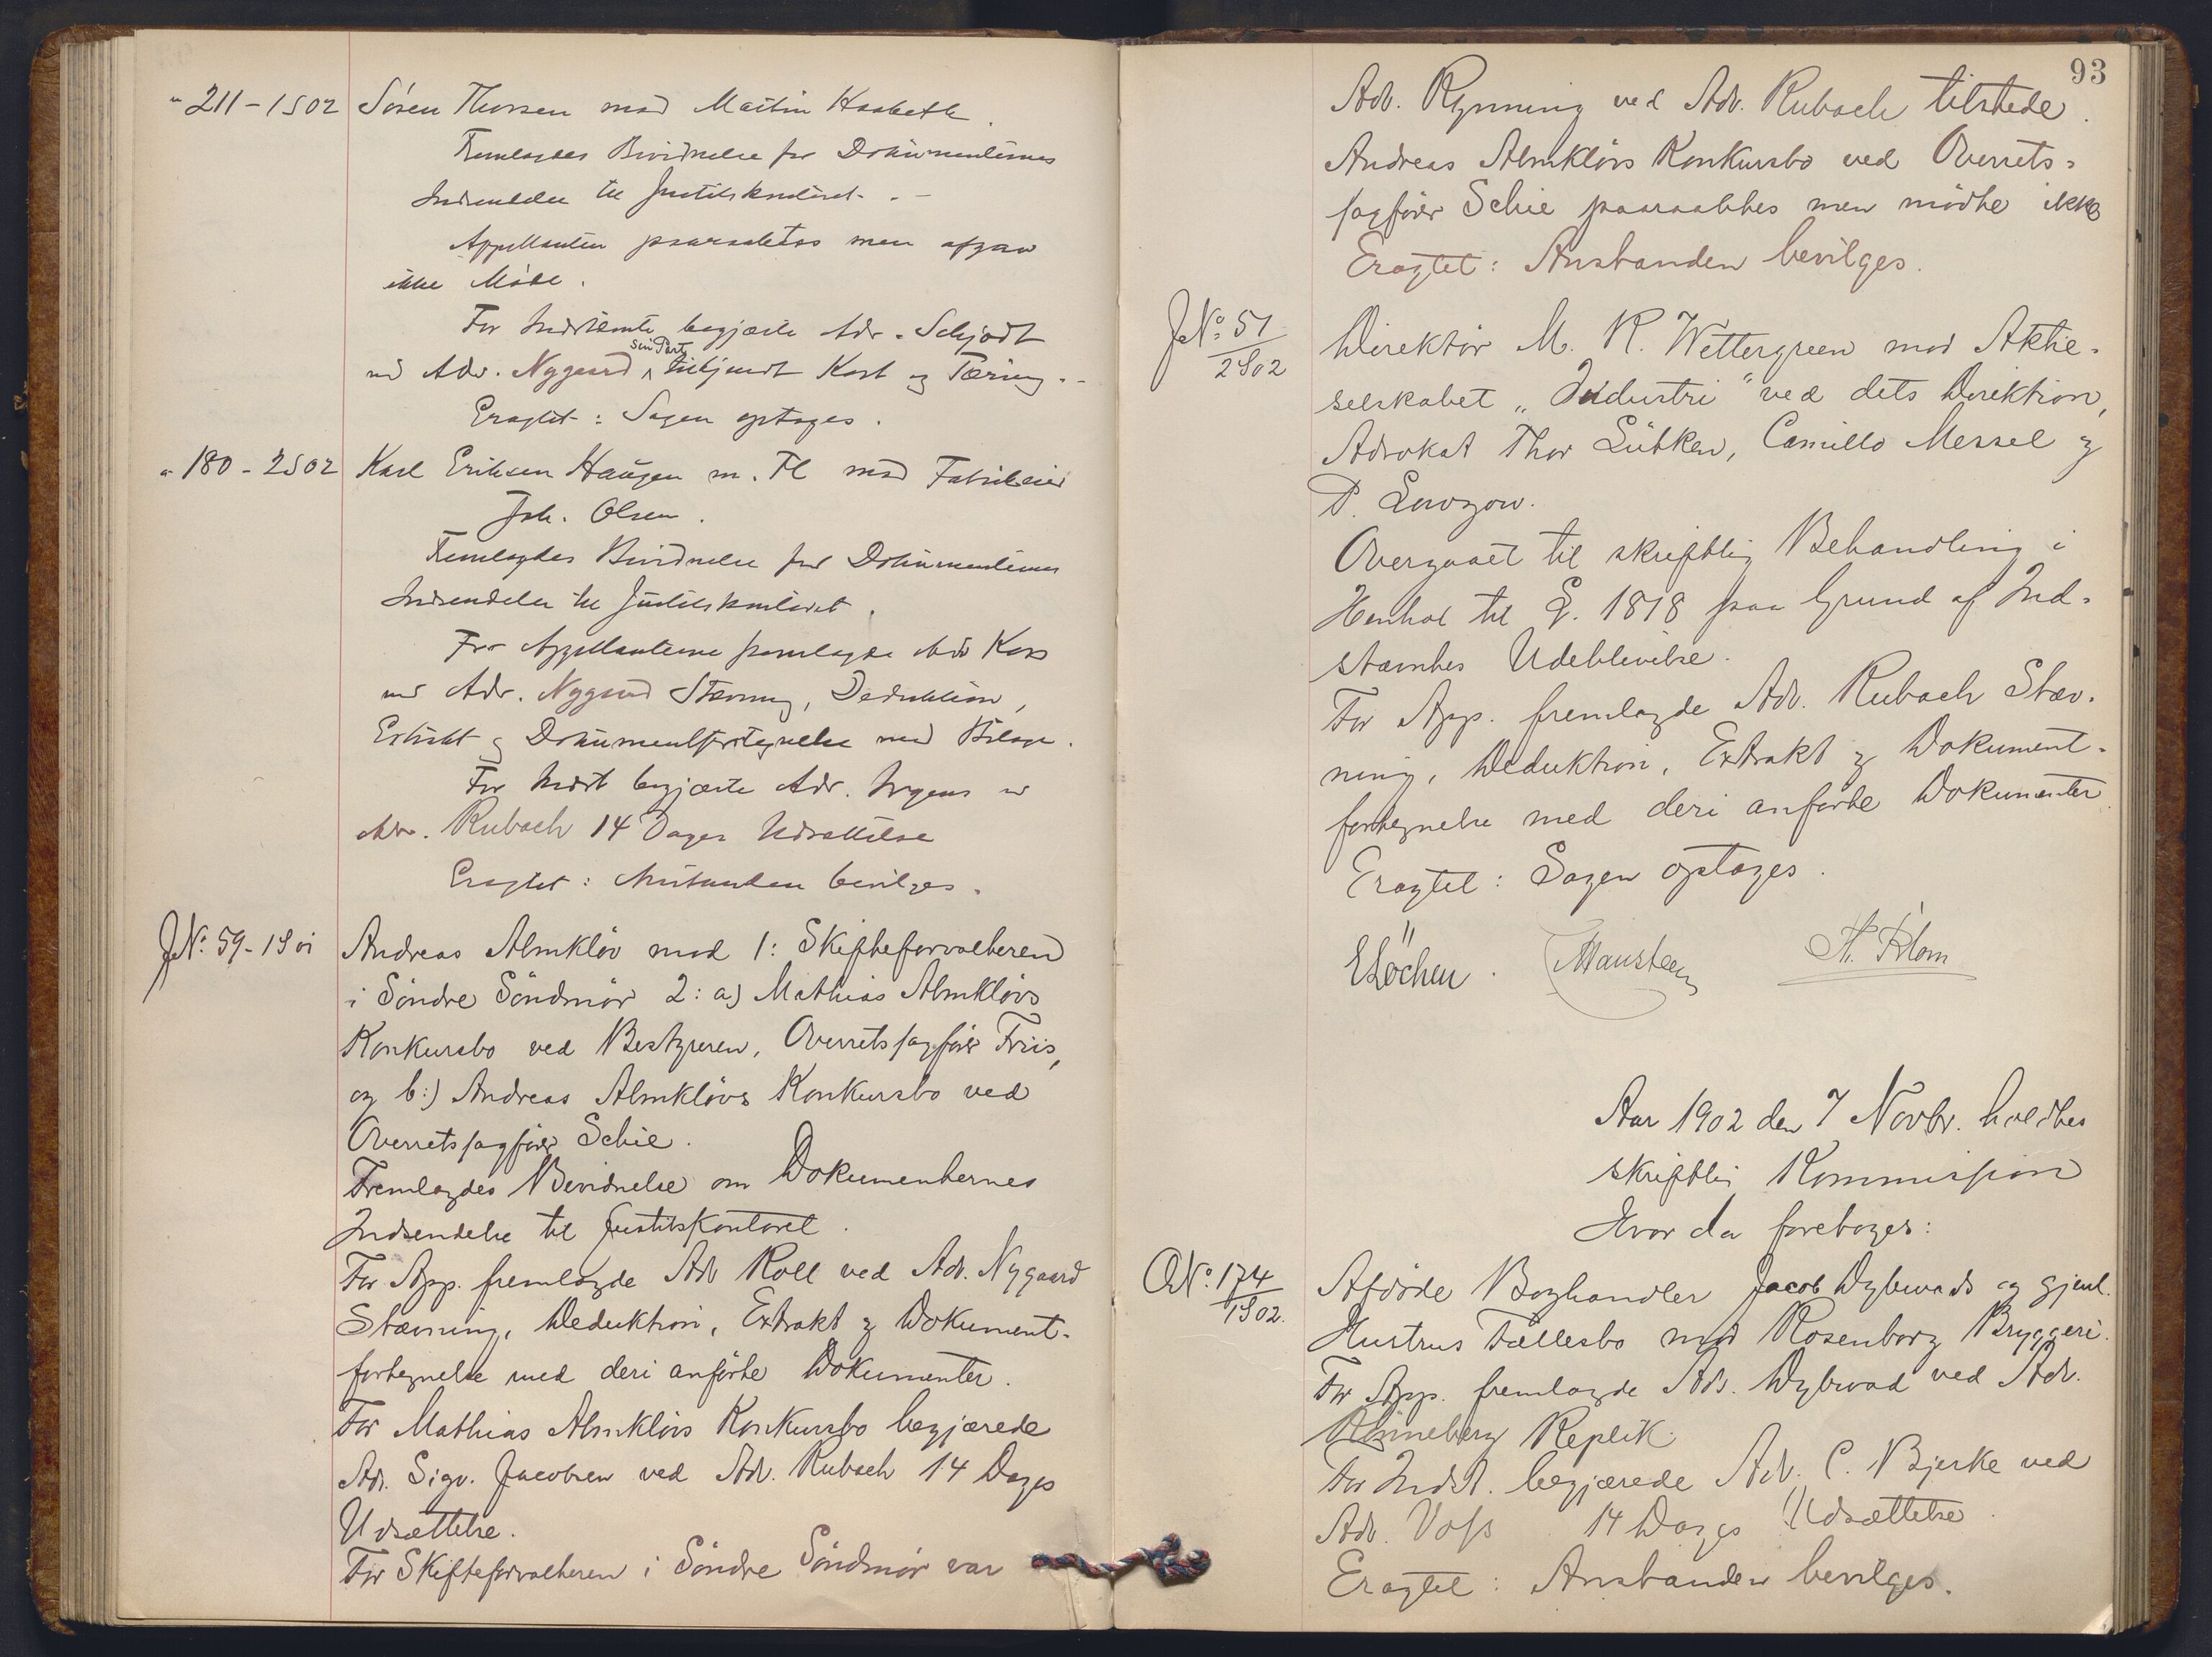 " 211 - 1 S 02 Sören Thorsen mod Martin Kaabeth.
Fremlagdes Bevidnelse for Dokumenternes
Indsendelse til Justitskontoret. -
Appellanten paaraabtes men afgav
ikke Möde.
For Indstevnte begjærte Adv. Schjødt
ved Adv. Nygaard sin Part tilkjendt Kost og Tæring. -
Eragtet: Sagen optages.
" 180 - 2 S 02 Karl Eriksen Haugen m. Fl mod Fabrikeier
Joh. Olsen.
Fremlagdes Bevidnelse for Dokumenternes
Indsendelse til Justitskontoret.
For Appellanterne fremlagde Adv
ved Adv. Nygaard Stevning, Deduktion,
Extrakt og Dokumentfortegnelse med Bilage.
For Indst begjærte Adv. Irgens v
Adv. Rubach 14 Dages Udsættelse
Eragtet: Anstanden bevilges.
J№. 59 - 1 S 01 Andreas Almklöv mod 1: Skifteforvalteren
i Söndre Söndmör 2: a) Mathias Almklövs
Konkursbo ved Bestyreren, Overretssagförer Friis,
og b:) Andreas Almklövs Konkursbo ved
Overretssagförer Schie.
Fremlagdes Bevidnelse om Dokumenternes
Indsendelse til Justitskontoret.
For App. fremlagde Adv Roll ved Adv. Nygaard
Stævning, Deduktion, Extrakt og Dokument-
fortegnelse med deri anförte Dokumenter.
For Mathias Almklövs Konkursbo begjærede
Adv. Sigv. Jacobsen ved Adv. Rubach 14 Dages
Udsættelse.
For Skifteforvalteren i Söndre Söndmör var
93
Adv. Rynning ved Adv. Rubach tilstede.
Andreas Almklövs Konkursbo ved Overrets-
sagförer Schie paaraabtes men mödte ikke
Eragtet: Anstanden bevilges.
J№. 51 / 2 S 02 Direktör M. R. Wettergreen mod Aktie-
selskabet „Industri" ved dets Direktion,
Advokat Thor Lütken, Camillo Messel og
P. Lowzow.
Overgaaet til skriftlig Behandling i
Henhol til L. 1818 paa Grund af Ind-
stævntes Udeblivelse.
For App. fremlagde Adv. Rubach Stæv-
ning, Deduktion, Extrakt og Dokument-
fortegnelse med deri anförte Dokumenter
Eragtet: Sagen optages.
E Löchen. Mausteen H. Blom
Aar 1902 den 7 Novbr. holdtes
skriftlig Kommission
Hvor da foretoges:
O№. 174 / 1 S 02. Afdöde Boghandler Jacob Dybwads og gjenl.
Hustrus Fællesbo mod Rosenborg Bryggeri.
For App. fremlagde Adv. Dybwad ved Adv.
Rönneberg Replik.
For Indst. begjærede Adv. C. Bjerke ved
Adv. Voss 14 Dages Udsættelse.
Eragtet: Anstanden bevilges.